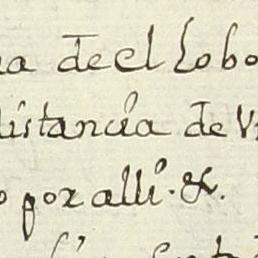 de el Lobo
distancia de
por alli. &.